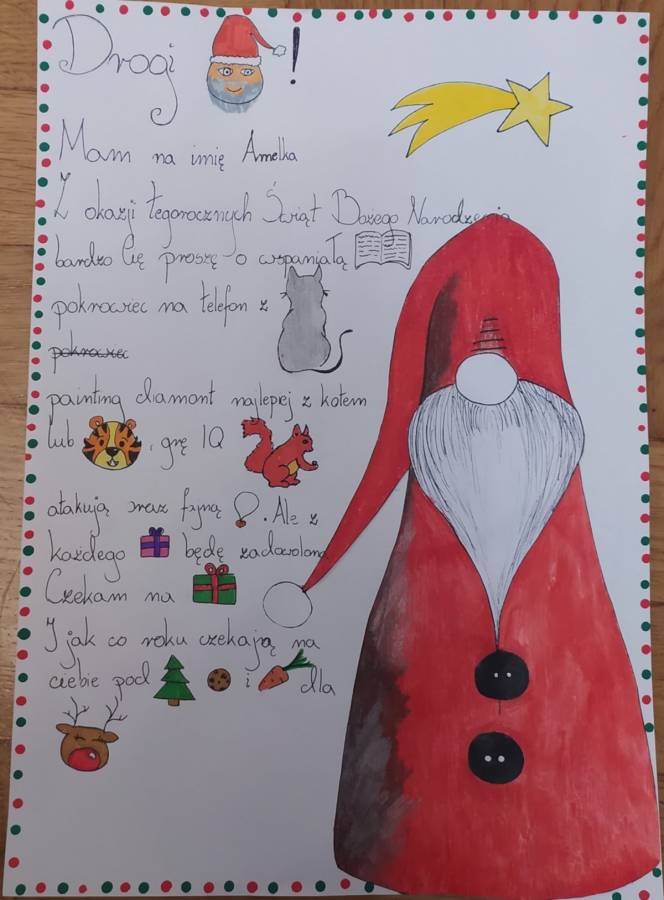 Drogi !
Mam na imię Amelka
Z okazji tegorocznych Świąt Bożego Narodzenia
bardzo Cię proszę o wspaniałą
pokrowiec na telefon z
pokrowiec
painting diamont najlepiej z kotem
lub , grę IQ
atakują oraz fajną . Ale z
każdego będę zadowolona
Czekam na
I jak co roku czekają na
ciebie pod i dla